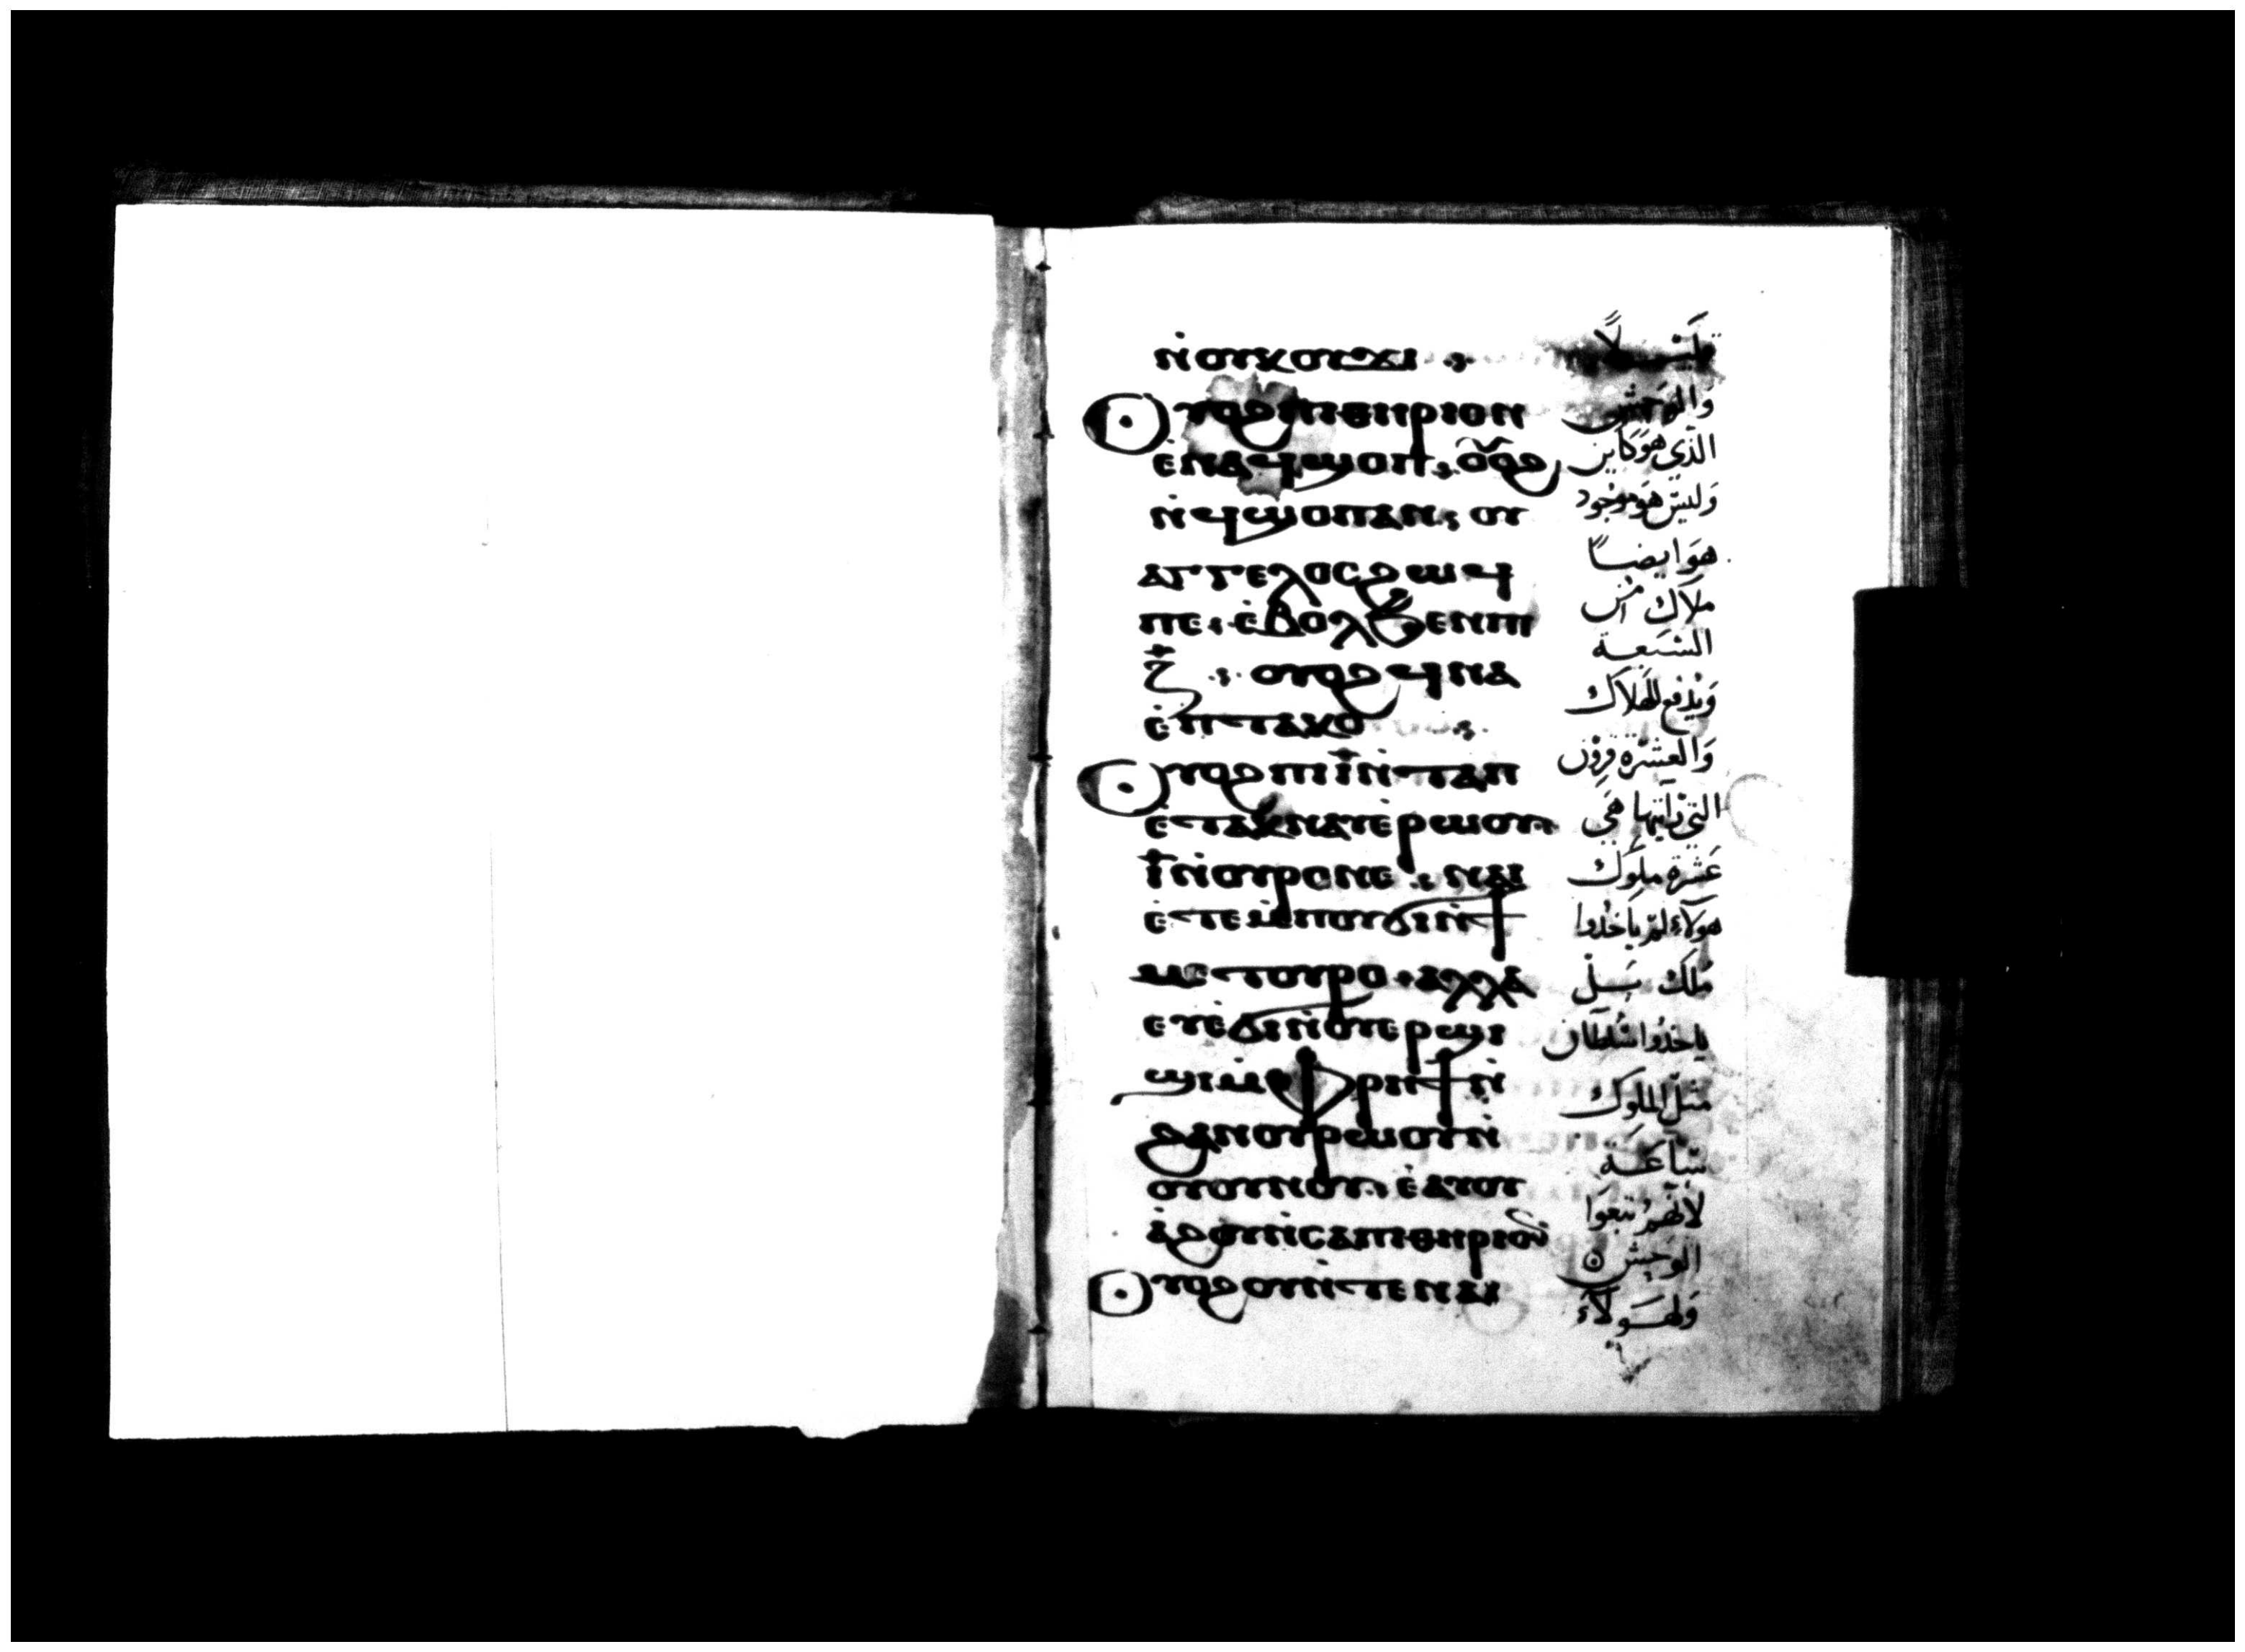 ⲛ̇ⲟⲩⲕⲟⲩϫⲓ ⁘
Ⲟⲩⲟϩ ⲡⲓⲑⲏⲣⲓⲟⲛ
ⲉ̇ⲛⲁϥϣⲟⲡ ⁘ ⲟⲩⲟϩ
ⲛ̇ϥϣⲟⲡ ⲁⲛ ⁘ ⲟⲩ
ⲁⲅⲅⲉⲗⲟⲥ ϩⲱϥ
ⲡⲉ ⁘ ⲉ̇ⲃⲟⲗ ϧⲉⲛ ⲡⲓ
ⲍ̅ ⁘ ⲟⲩⲟϩ ϥⲛⲁ
ⲉ̇ⲡⲧⲁⲕⲟ ⁘
Ⲟⲩⲟϩ ⲡⲓⲓ̅ ⲛ̇ⲧⲁⲡ
ⲉ̇ⲧⲁⲕⲛⲁⲩ ⲉ̇ⲣⲱⲟⲩ
ⲓ̅ ⲛ̇ⲟⲩⲣⲟ ⲛⲉ ⁘ ⲛⲁⲓ
ⲉ̇ⲧⲉ ⲙ̇ⲡⲟⲩϭⲓ ⲛ̇ϯ
ⲙⲉⲧⲟⲩⲣⲟ ⁘ ⲁⲗⲗⲁ
ⲉⲩⲉ̇ϭⲓ ⲛ̇ⲟⲩⲉⲣϣⲓ
ϣⲓ ⲙ̇ⲫⲣⲏϯ ⲛ̇
ϩⲁⲛⲟⲩⲣⲱⲟⲩ ⲛ̇
ⲟⲩⲟⲩⲛⲟⲩ ⲉ̇ⲁⲩⲟⲩ
ⲁ̇ϩⲟⲩ ⲛ̇ⲥⲁ ⲡⲓⲑⲏⲣⲓⲟⲛ̅
Ⲟⲩⲟϩ ⲟⲛ ⲛ̇ⲧⲉ ⲛⲁⲓ
وَالوحش
الذي هوَ كاين
وَليسَ هوَ موجود
هوَ ايضًا
ملاك من
السَبعة
وَيدفع للهلاك
وَالعشرة قرون
التي رَايتها هَي
عَشرة ملوك
هولاء لم ياخدوا
ملك بَل
ياخدوا سُلطان
مثل الملوك
سَاعَة
لانهم تبعوَا
الوَحش ۞
وَلهَولآء